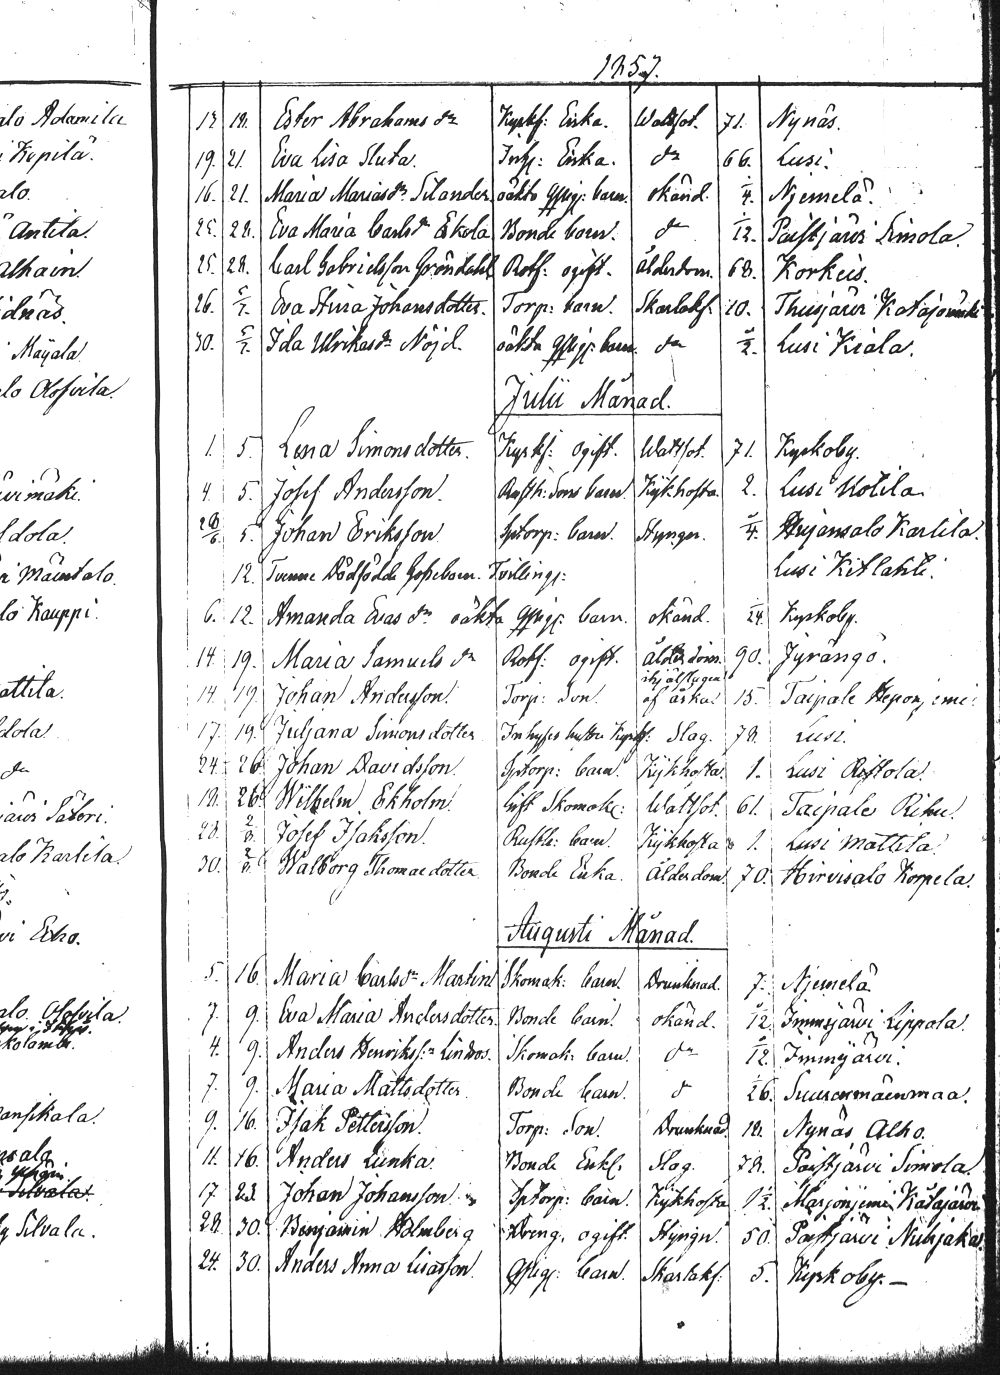 1857.
alo Adamila
i Kepilä.
alo.
Antila.
alhain.
idnäs.
i Mäyala
lo Olofvila.
dola.
ri Mäentalo.
lo Kauppi.
attila.
dola
dr
järvi Säteri.
alo Karlila.
vi Eiho.
alo Olofvila.
ansikala.
Silvala.
Silvala.
17. 18. Ester Abrahams dr Kyrkf: Enka. Wattsot. 71. Nynäs.
19. 21. Eva Lisa Sluta. Inh: Enka. dr 66. Lusi.
16. 21. Maria Mariasdr Silander oäkta Qpig: barn. okänd. 1/4. Njemelä.
25. 28. Eva Maria Carls dr Eskola Bonde barn. dr 1/12. Paistjärvi Simola.
25. 28. Carl Gabrielsson Gröndahl Rotf: ogift. ålderdom. 68. Korkeis.
26. 5/7. Eva Stina Johansdotter. Torp: barn. Skarlakf: 10. Thusjärvi Katajomäki
30. 5/7. Ida Ulrikas dr Nöjd. oäkta Qpig: barn. dr 5/2. Lusi Kiala.
Julii Månad.
1. 5. Lena Simonsdotter. Kyrkf: ogift. Wattsot. 71. Kyrkoby.
4. 5. Josef Andersson. Rusth: Sons barn. Kikhosta 2. Lusi Kotila.
28/6 5. Johan Eriksson. Sptorp: barn. Hunger. 3/4. Hujansalo Karlila.
12. Tvenne Dödfödde Gossebarn. Tvillingr: Lusi Kitlahti.
6. 12. Amanda Evas dr oäkta Qpig: barn. okänd. 1/24. Kyrkoby.
14. 19. Maria Samuels dr Rotf: ogift. ålderdom. 90. Jyrängö.
14. 19. Johan Andersson. Torp: Son. ihjälslagen af åska. 15. Taipale Heponjemi.
17. 19. Juljana Simonsdotter Inhyses hustru Kyrkf: Slag. 78. Lusi.
24. 26. Johan Davidsson. Sptorp: barn. Kikhosta. 1. Lusi Ristola.
18. 26. Wilhelm Ekholm. Gift Skomak: Wattsot. 61. Taipale Rihu.
28. 2/8. Josef Isaksson. Rusth: barn. Kikhosta 1. Lusi Mattila.
30. 2/8. Walborg Thomaedotter Bonde Enka. Ålderdom. 70. Hirvisalo Korpela.
Augusti Månad.
5. 16. Maria Carlsdr Martin Skomak: barn. Drunknad. 7. Njemelä
7. 9. Eva Maria Andersdotter. Bonde barn. okänd. 5/12. Immjärvi Lippola.
4. 9. Anders Henrikss:n Lindroos. Skomak: barn. dr 5/12. Immjärvi.
7. 9. Maria Mattsdotter Bonde barn. d 1/26. Suurenmäenmaa.
9. 16. Isak Pettersson. Torp: Son. Drunknad. 18. Nynäs Alho.
11. 16. Anders Lunka. Bonde Enkl: Slag. 78. Paistjärvi Simola.
17. 23. Johan Johansson Sptorp: barn. Kikhosta 1 1/2. Marjonjemi Katajärvi
28. 30. Benjamin Holmberg Dreng, ogift. Hyngn. 50. Paistjärvi Nurjakas.
24. 30. Anders Anna Lisasson. Qpig: barn. Skarlakf: 5. Kyrkoby.